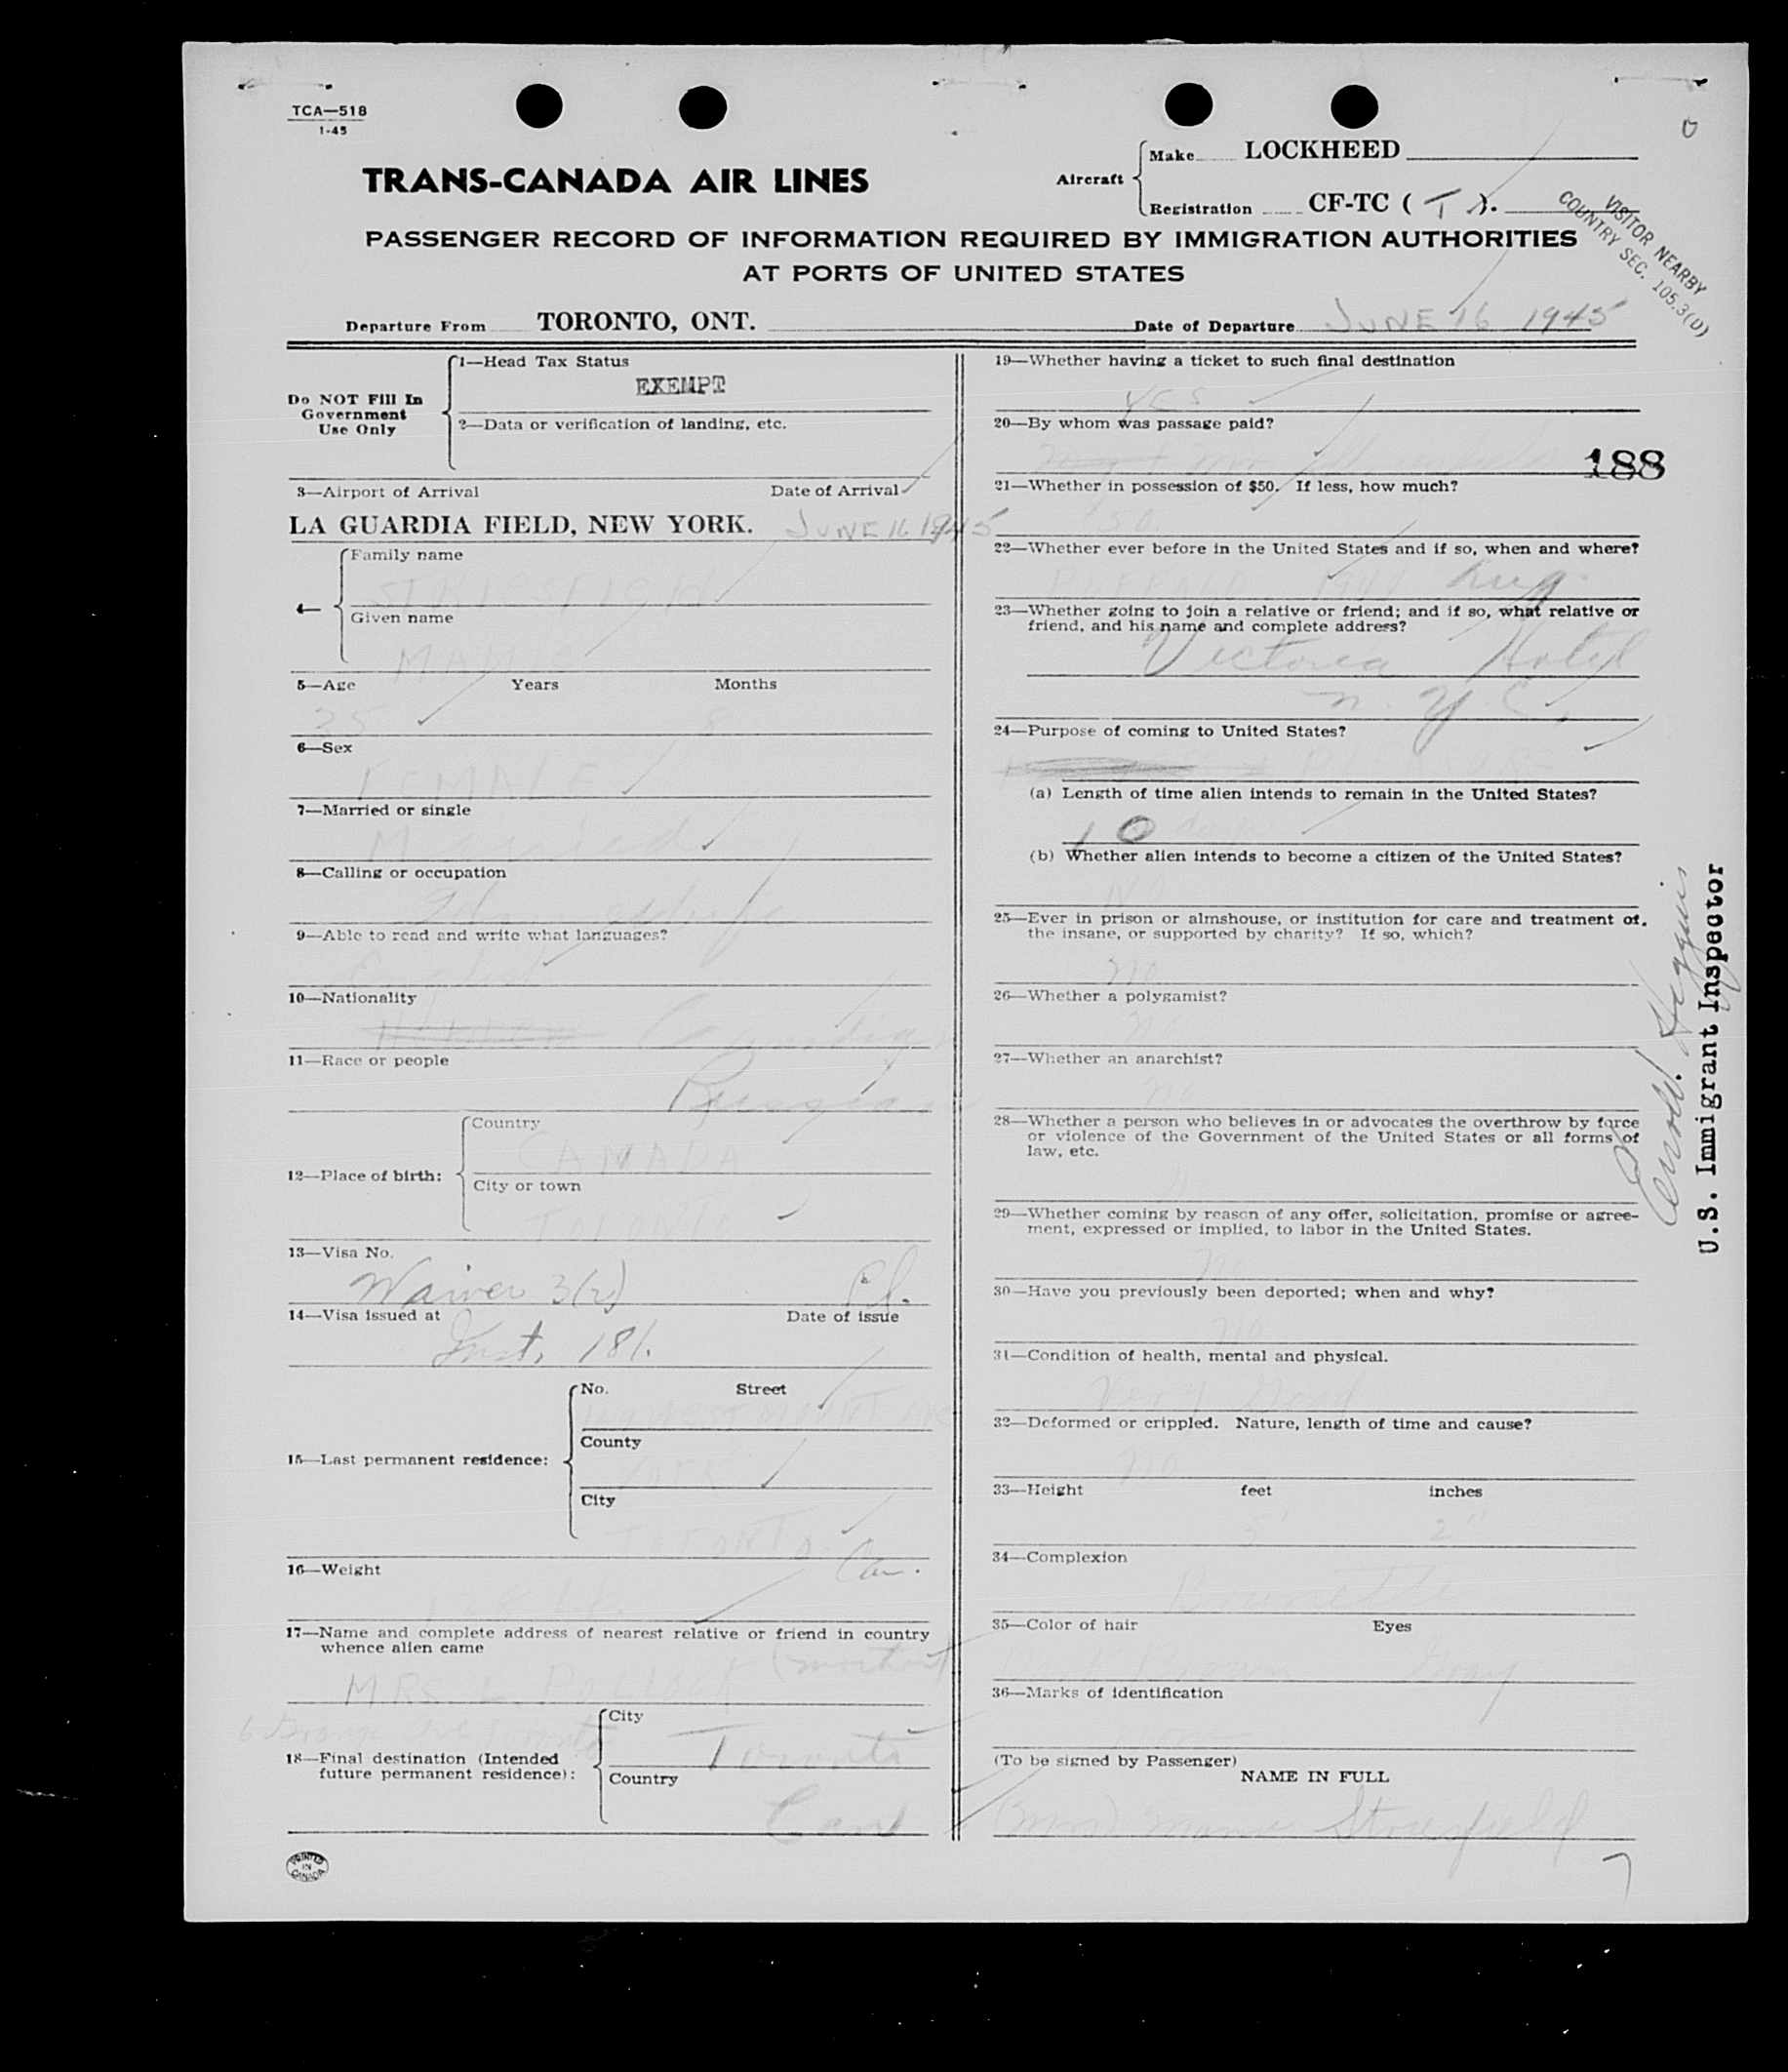 TCA—518
1-45
TRANS-CANADA AIR LINES
Aircraft
Make LOCKHEED
Registration CF-TC ( T ).
VISITOR NEARBY
COUNTRY SEC. 105.3(D)
PASSENGER RECORD OF INFORMATION REQUIRED BY IMMIGRATION AUTHORITIES
AT PORTS OF UNITED STATES
Departure From TORONTO, ONT. Date of Departure JUNE 16 1945
Do NOT Fill In
Government
Use Only
1—Head Tax Status
EXEMPT
2—Data or verification of landing, etc.
3—Airport of Arrival Date of Arrival
LA GUARDIA FIELD, NEW YORK. JUNE 16 1945
4—
Family name
Given name
5—Age Years Months
35 8
6—Sex
FEMALE
7—Married or single
Married
8—Calling or occupation
9—Able to read and write what languages?
English
10—Nationality
Canadian
11—Race or people
12—Place of birth:
Country
CANADA
City or town
TORONTO
13—Visa No.
Waiver 3(2)
14—Visa issued at Date of issue
Inst. 181.
15—Last permanent residence:
No. Street
WESTMOUNT AVE
County
YORK
City
TORONTO Can.
16—Weight
17—Name and complete address of nearest relative or friend in country
whence alien came
MRS. L. POLLOCK
18—Final destination (Intended
future permanent residence):
City
Toronto
Country
Can
PRINTED
IN
CANADA
19—Whether having a ticket to such final destination
yes
20—By whom was passage paid?
188
21—Whether in possession of $50. If less, how much?
50
22—Whether ever before in the United States and if so, when and where?
BUFFALO 1944 Aug.
23—Whether going to join a relative or friend; and if so, what relative or
friend, and his name and complete address?
Victoria Hotel
N.Y.C.
24—Purpose of coming to United States?
PLEASURE
(a) Length of time alien intends to remain in the United States?
10 days
(b) Whether alien intends to become a citizen of the United States?
No
25—Ever in prison or almshouse, or institution for care and treatment of,
the insane, or supported by charity? If so, which?
no
26—Whether a polygamist?
no
27—Whether an anarchist?
no
28—Whether a person who believes in or advocates the overthrow by force
or violence of the Government of the United States or all forms of
law, etc.
29—Whether coming by reason of any offer, solicitation, promise or agree-
ment, expressed or implied, to labor in the United States.
no
30—Have you previously been deported; when and why?
no
31—Condition of health, mental and physical.
Very Good
32—Deformed or crippled. Nature, length of time and cause?
no
33—Height feet inches
5' 2"
34—Complexion
Brunette
35—Color of hair Eyes
Brown Gray
36—Marks of identification
(To be signed by Passenger)
NAME IN FULL
(Mrs)
Higgins
U.S. Immigrant Inspector